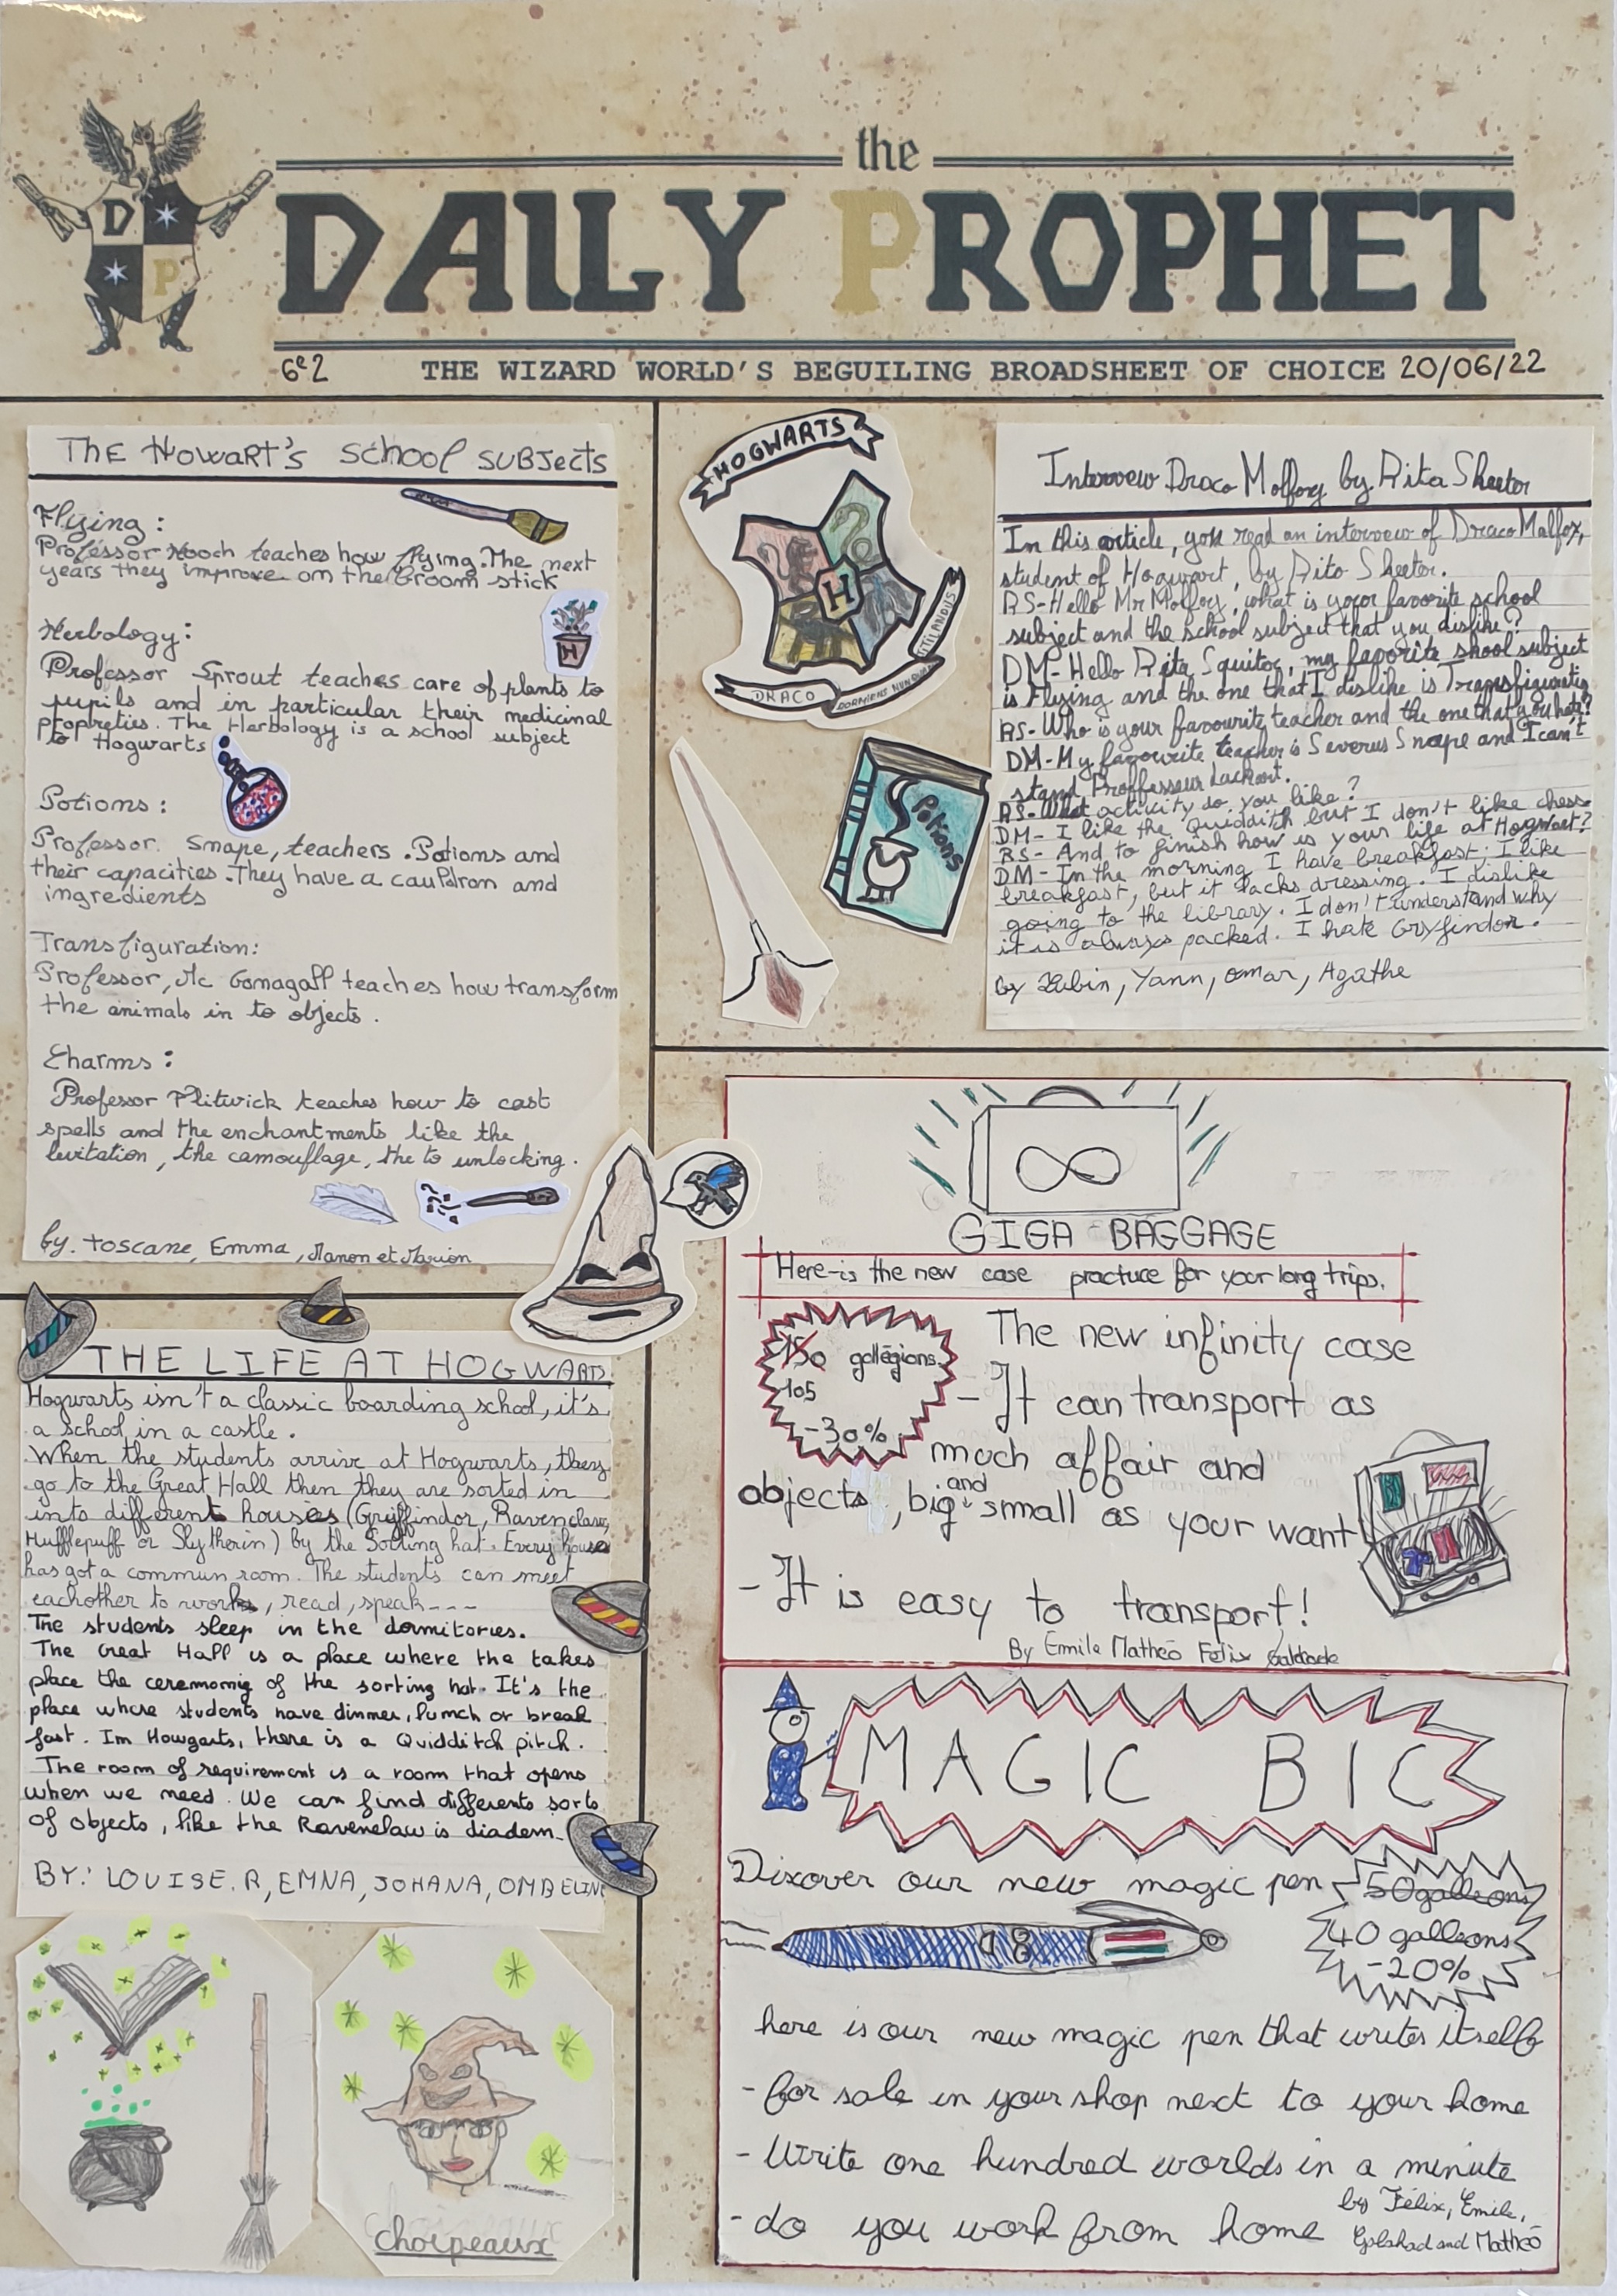 the
DAILY PROPHET
D
P
6e2 THE WIZARD WORLD'S BEGUILING BROADSHEET OF CHOICE 20/06/22
The Howart's school subjects
Flying:
Professor Hooch teaches how flying. The next
years they improve on the Broom stick
Herbology:
H
Professor Sprout teaches care of plants to
pupils and in particular their medicinal
propreties. The Herbology is a school subject
to Hogwarts
Potions:
Professor Snape, teachers. Potions and
their capacities. They have a cauldron and
ingredients
Transfiguration:
Professor, Mc Gonagall teaches how transform
the animals in to objects.
Charms:
Professor Flitwick teaches how to cast
spells and the enchantments like the
levitation, the camouflage, the to unlocking.
by. Toscane, Emma, Manon et Marion
HOGWARTS
H
DRACO DORMIENS NUNDUAM TITILANDUS
Potions
Intervew Draco Molfoy by Rita Skeeter
In this article, you read an intervew of Draco Malfoy,
student of Hogwart, by Rita Skeeter.
RS-Hello Mr Molfoy, what is your favorite school
subject and the school subject that you dislike?
DM-Hello Rita Squitor, my favorite shool subject
is Flying and the one that I dislike is Transfiguratio
RS-Who is your favourite teacher and the one that you hate?
DM-My favourite teacher is Severus Snape and I can't
stand Proffesseur Lackort.
RS-What activity do you like?
DM-I like the Quidditch but I don't like chess
RS-And to finish how is your life at Hogwart?
DM-In the morning I have breakfast; I like
breakfast, but it lacks dressing. I dislike
going to the library. I don't understand why
it is always packed. I hate Gryfindor.
by Lubin, Yann, Omar, Agathe
GIGA BAGGAGE
Here-is the new case practuce for your long trips.
150 gallégions.
105
-30%
The new infinity case
-It can transport as
much affair and
objects, big and small as your want
-It is easy to transport!
By Émile Mathéo Félix
THE LIFE AT HOGWARTS
Hogwarts isn't a classic boarding school, it's
a school in a castle.
When the students arrive at Hogwarts, they
go to the Great Hall then they are sorted in
into different houses (Gryffindor, Ravenclaw,
Hufflepuff or Slytherin) by the Sorting hat. Every house
has got a commun room. The students can meet
eachother to work, read, speak---
The students sleep in the dormitories.
The Great Hall is a place where the takes
place the ceremonig of the sorting hat. It's the
place where students have dinner, lunch or break
fast. In Howgarts, there is a Quidditch pitch.
The room of requirement is a room that opens
when we need. We can find differents sorts
of objects, like the Ravenclaw is diadem.
BY: LOUISE.R, EMNA, JOHANA, OMBELINE
choipeaux
MAGIC BIC
Discover our new magic pen
50 galleons
40 galleons
-20%
here is our new magic pen that writes itself
-for sale in your shop next to your home
-Write one hundred worlds in a minute
-do you work from home
by Félix, Émile,
Galahad and Mathéo